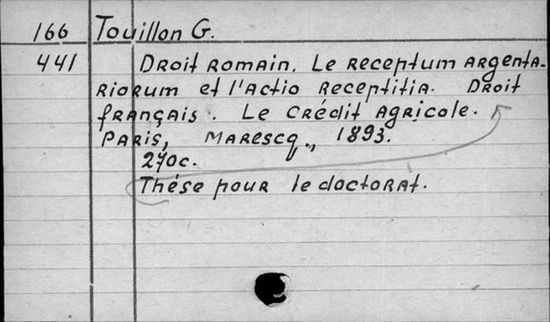 166 Touillon G.
441 Droit romain. Le receptum argenta-
riorum et l'actio receptitia. Droit
français. Le crédit agricole.
Paris, Marescq., 1893.
270c.
Thése pour le doctorat.